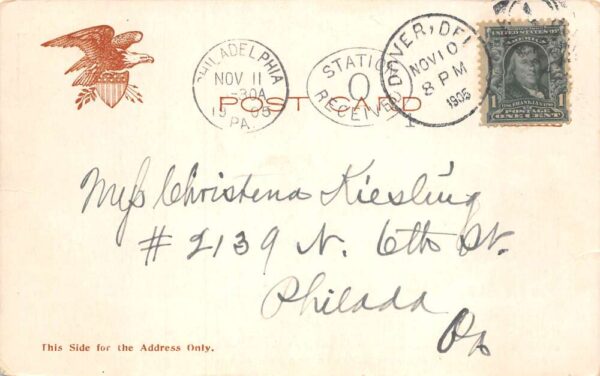 POST CARD
PHILADELPHIA
NOV 11
-30A
1905
PA.
STATION
O
RECEIVED
DOVER, DEL
NOV 10
8 PM
1905
1
UNITED STATES OF AMERICA
FRANKLIN
1 1
POSTAGE
ONE CENT
Miss Christena Kiesling
# 2139 N. 6th St.
Philada
Pa
This Side for the Address Only.